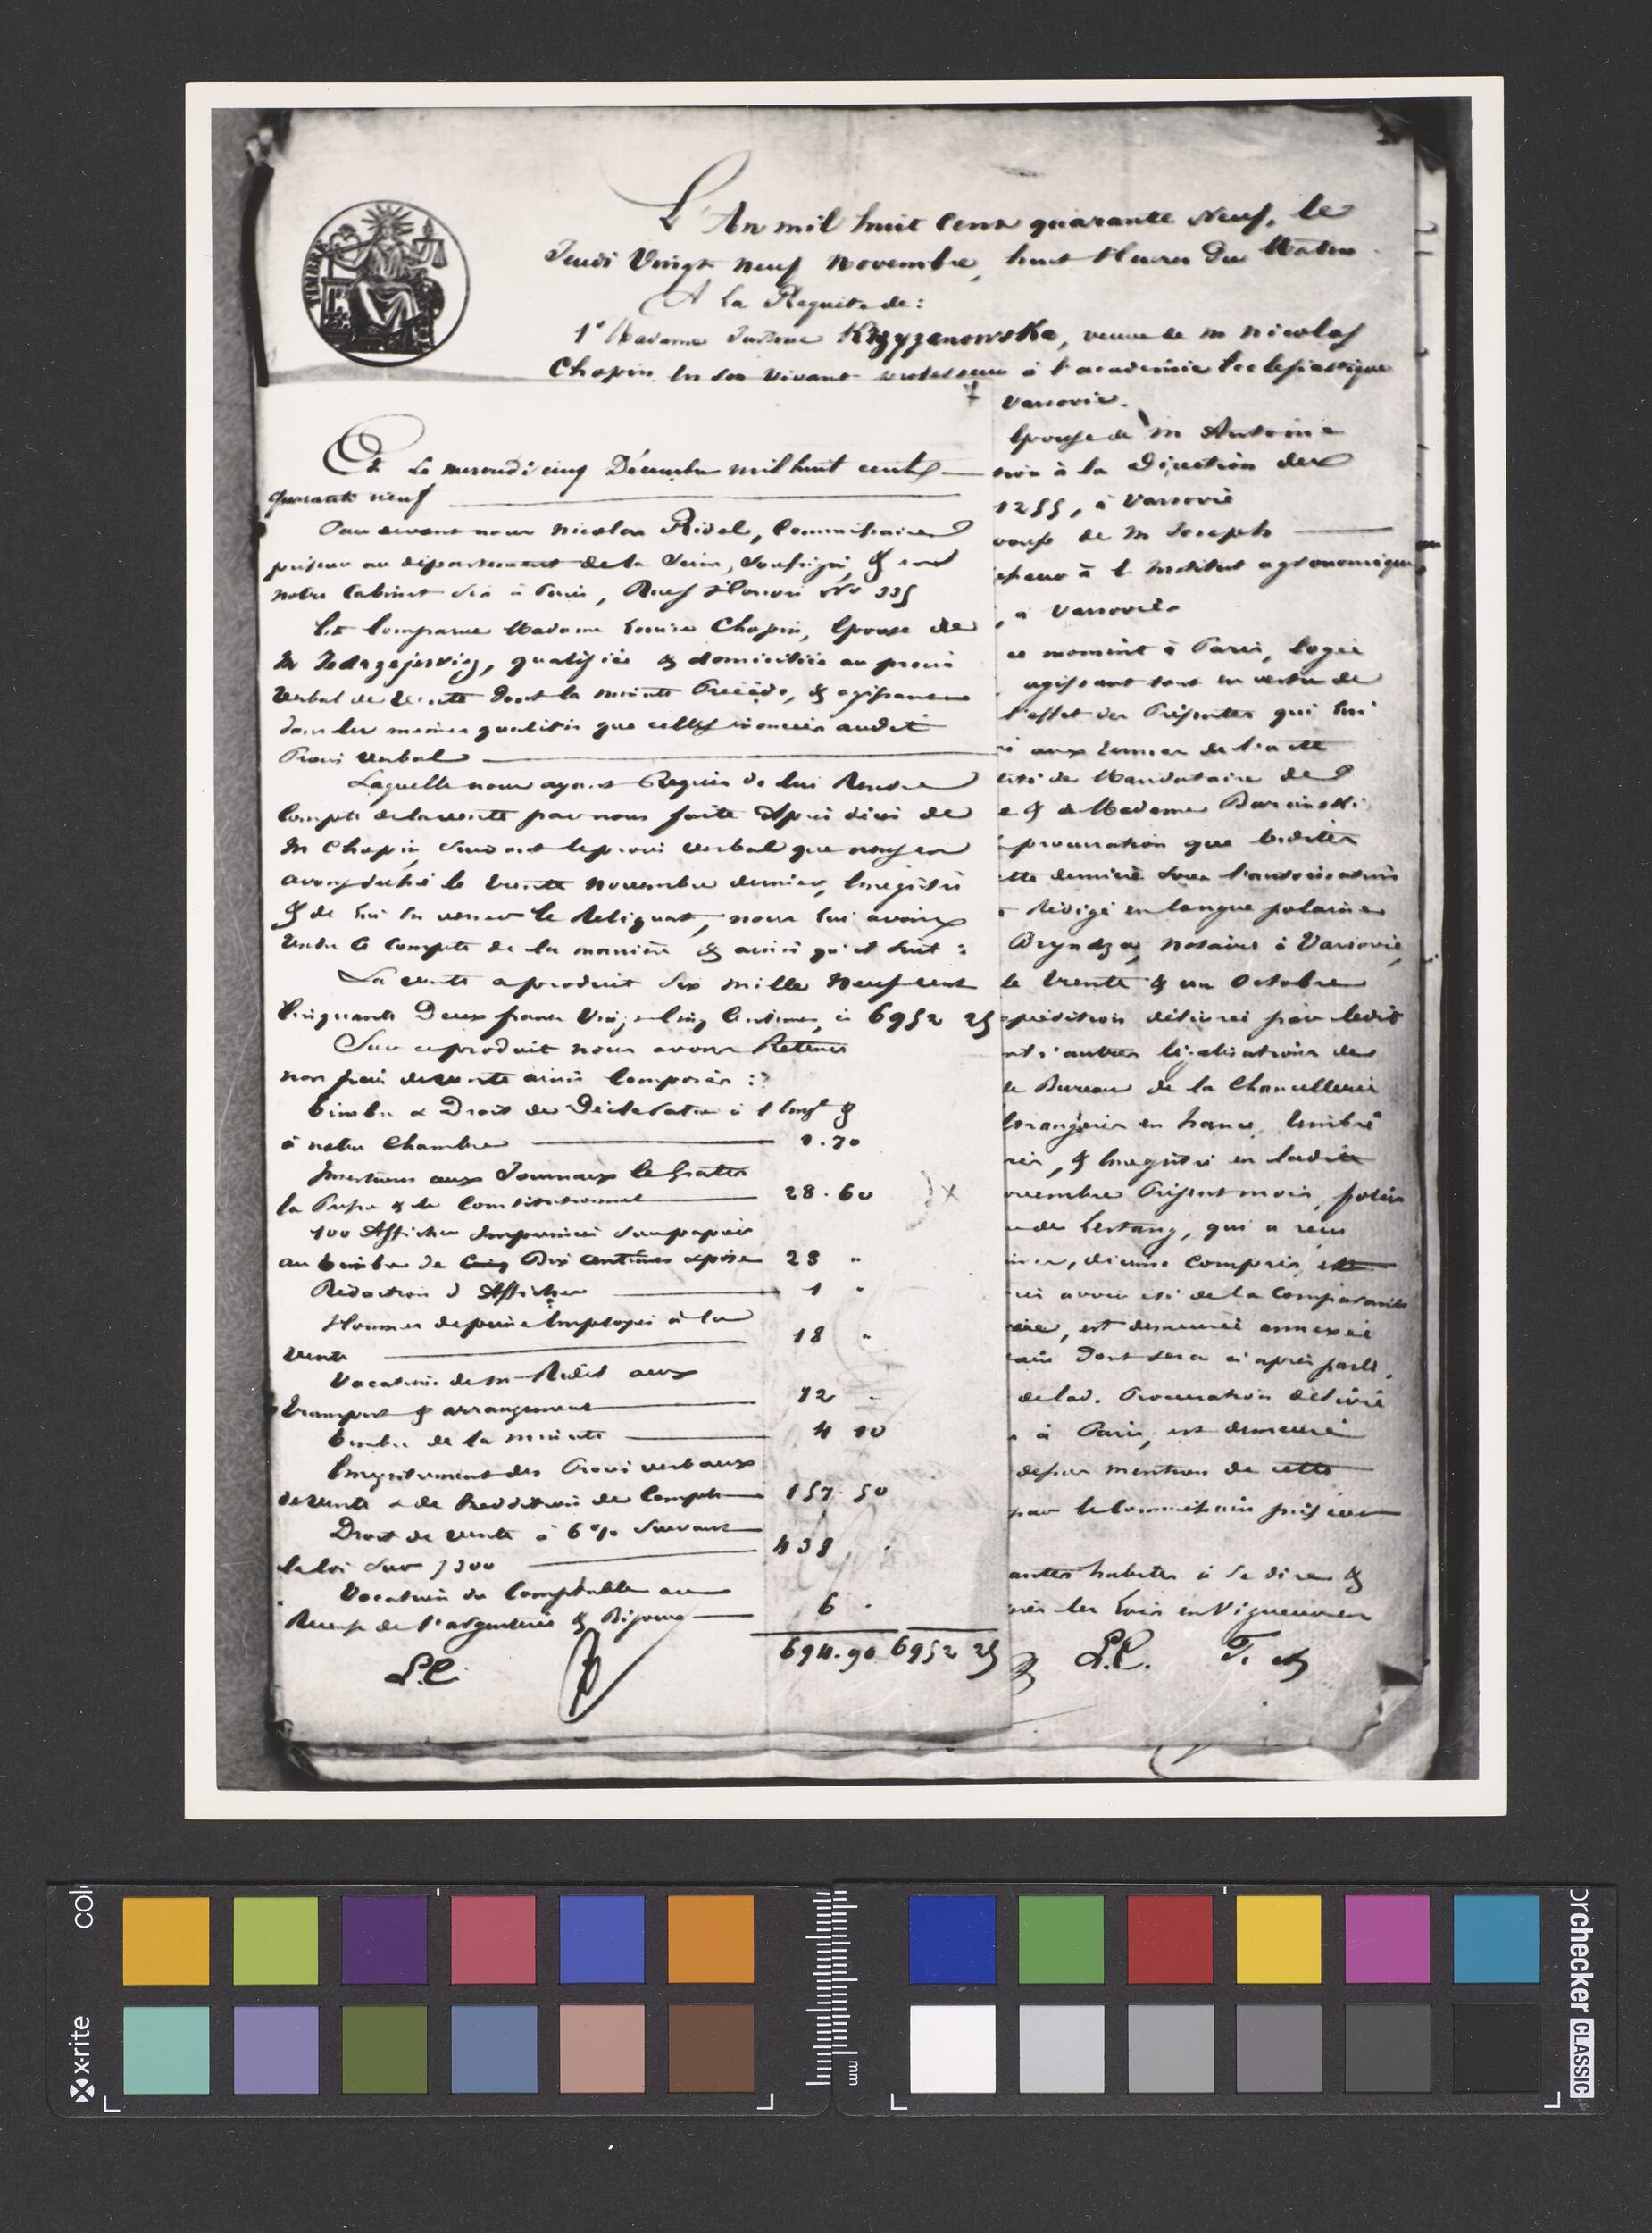 TIMBRE
L'An mil huit cent quarante Neuf, le
Jeudi Vingt neuf Novembre, huit Heures du Matin
A la Requête de:
1° Madame Justine Krzyzanowska, veuve de m Nicolas
Chopin en son vivant professeur à l'academie Ecclesiastique
Varsovie.
Epouse de m Antoine
à la Direction des
1255, à Varsovie
de m Joseph
à l'Institut agronomique
, à Varsovie
ce moment à Paris, logée
agissant tant en vertu de
l'effet des Présentes qui lui
aux termes de l'acte
de Mandataire de
e & de Madame Barcinski
procuration que lesdites
dernière sous l'autorisation
rédigé en langue polonaise
Bryndza, notaire à Varsovie,
le trente & un Octobre
délivrée par ledit
d'autres légalisations de
le Bureau de la Chancellerie
Etrangères en france, timbré
, & Enregistré en ladite
Présent mois, folio
de Lestang, qui a reçu
, dixième compris
avoir été de la Comparante
, est demeurée annexée
dont sera ci après parlé,
de lad. Procuration délivré
à Paris, est demeuré
mention de cette
par le Commissaire priseur
habiles à se dire &
les lois en Vigueur en
L.C.
Et Le mercredi cinq Décembre mil huit cent
quarante neuf
Par devant nous Nicolas Ridel, Commissaire
priseur au département de la Seine, soussigné, & en
notre Cabinet sis à Paris, Rue St Honoré No 335
Est Comparue Madame Louise Chopin, Epouse de
M Jedrzejewicz, qualifiée & domiciliée au procès
verbal de vente dont la minute Précède, & agissant
dans les mêmes qualités que celles énoncées audit
Procès verbal
Laquelle nous ayant Requis de lui Rendre
Compte de la vente par nous faite après décès de
M Chopin, suivant le procès verbal que nous en
avons dressé le trente novembre dernier, Enregistré
& de lui en verser le Reliquat, nous lui avons
rendu ce compte de la manière & ainsi qu'il suit:
La vente a produit Six mille Neuf cent
Cinquante Deux francs Vingt cinq Centimes, ci 6952 25
Sur ce produit nous avons Retenu
nos frais de vente ainsi Composés :
Timbre & Droit de Déclaration à l'Engt &
à notre Chambre 1.70
Insertions aux Journaux les Petites
la Presse & le Constitutionnel 28.60
100 Affiches Imprimées sur papier
au timbre de Cinq Dix centimes & pose 28 "
Rédaction d'Affiches 1 "
Hommes de peine Employés à la
Vente 18 "
Vacation de M Ridel aux
transport & arrangement 12
timbre de la minute 4 10
Enregistrement des Procès verbaux
de vente & de Reddition de Compte 157.50
Droit de vente à 6 % Suivant
la loi sur 7300 438
Vacation du Comptable au
de l'argenterie & Bijoux 6
694.90 6952 25
L.C.
x-rite
colorchecker CLASSIC
mm